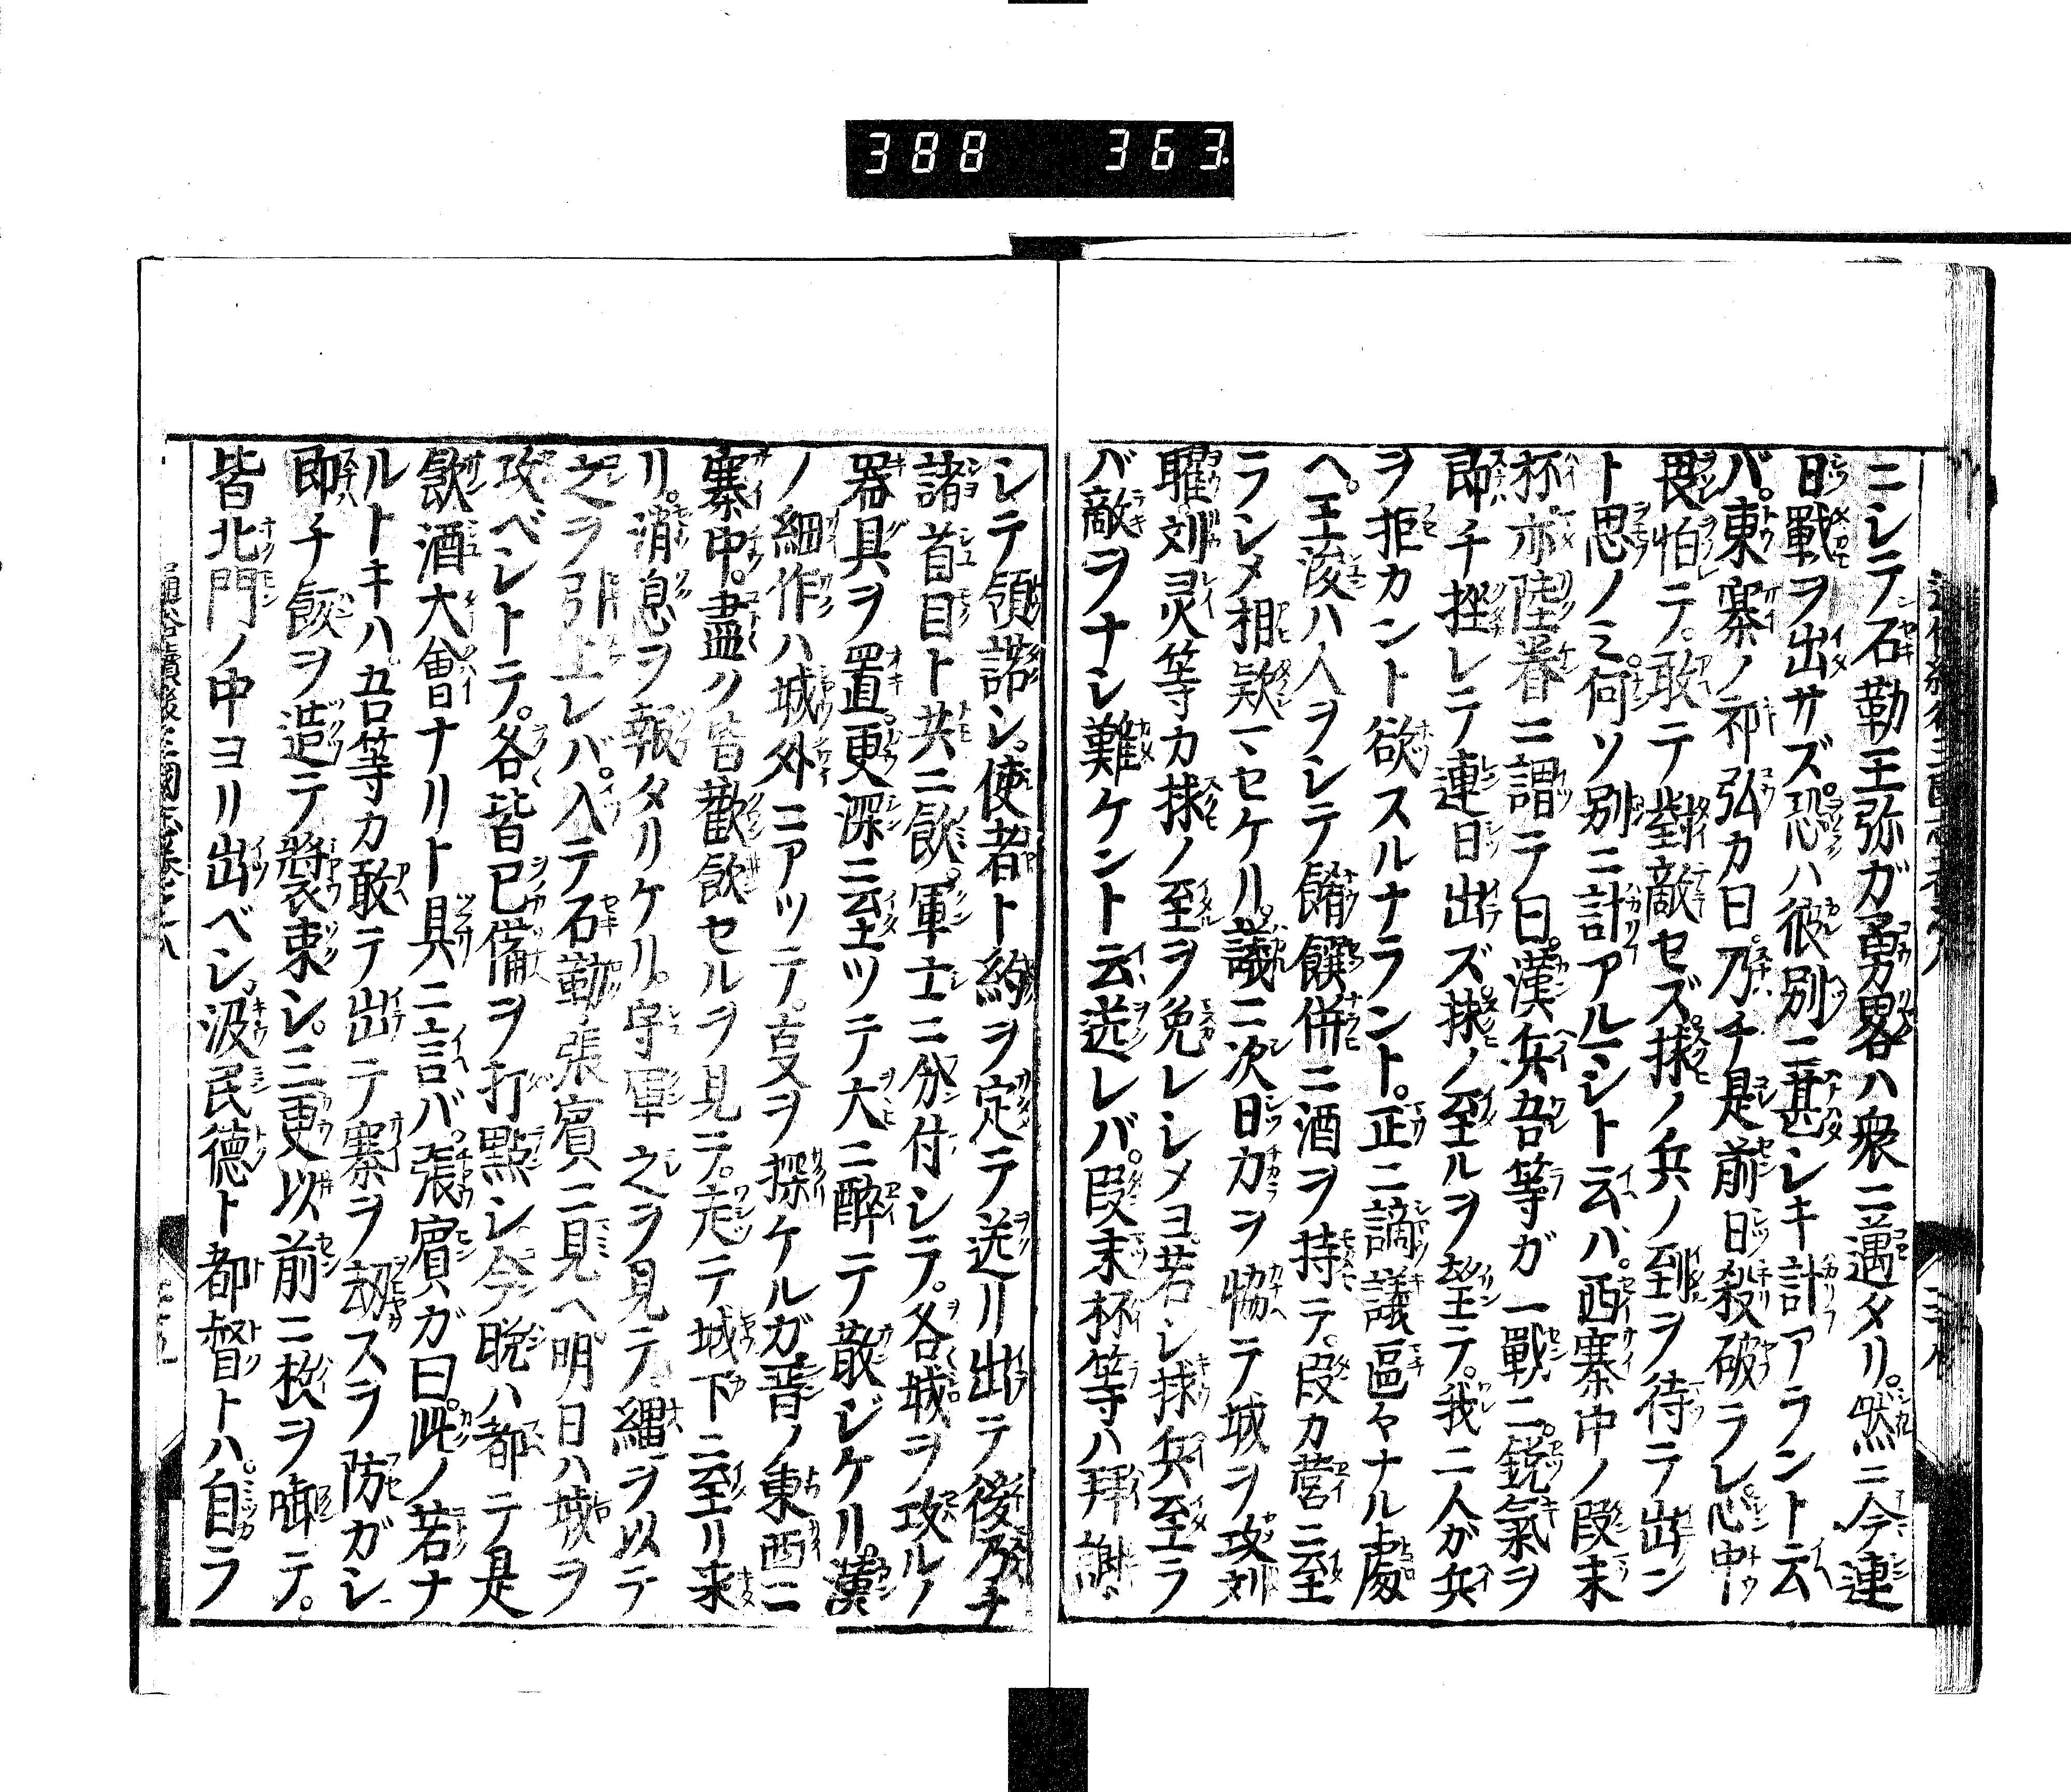 388 363
ニレテ石勒王弥ガ勇畧ハ衆ニ邁タリ。然ニ今連
日戰ヲ出サズ。恐ハ彼別ニ甚シキ計アラント云
バ。東寨ノ祁弘カ曰。乃チ是前日殺破ラレ心中
畏怕テ。敢テ對敵セズ。捄ノ兵ノ到ヲ待テ出ン
ト思ノミ。何ソ別ニ計アルヿシト云バ。西寨中ノ段末
杯。亦陸眷ニ謂テ曰。漢兵吾等ガ一戰ニ。鋭氣ヲ
即チ挫レテ連日出ズ。捄ノ至ルヲ望テ。我二人ガ兵
ヲ拒カント欲スルナラント。正ニ議區々ナル處
ヘ。王浚ハ人ヲシテ餚饌併ニ酒ヲ持テ。段カ營ニ至
ラシメ相欵マセケリ。議ニ次日力ヲ恊テ城ヲ攻刘
曜。刘灵等カ捄ノ至ヲ免レシメヨ。若シ捄兵至ラ
バ敵ヲナシ難ケント云送レバ。段末杯等ハ拜謝
シテ領諾シ。使者ト約ヲ定テ送リ出テ後乃チ
諸首目ト共ニ飲。軍士ニ分付シテ。各城ヲ攻ルノ
器具ヲ置。更深ニ至ツテ大ニ醉テ散ジケリ。漢
ノ細作ハ城外ニアツテ。㕝ヲ探ケルガ。晉ノ東西ニ
寨中。盡ク皆歡飲セルヲ見テ。走テ城下ニ至リ来
リ。消息ヲ報タリケリ。守軍之ヲ見テ。縄ヲ以テ
之ヲ引上レバ。入テ石勒張賓ニ見ヘ。明日ハ城ヲ
攻ベシトテ。各皆已備ヲ打點シ。今晩ハ都テ是
飲酒大會ナリト具ニ言バ。張賓ガ曰。此ノ若ナ
ルトキハ。吾等カ敢テ出テ寨ヲ刼スヲ防ガシ
即チ飯ヲ造テ裝束シ。三更以前ニ枚ヲ啣テ。
皆北門ノ中ヨリ出ベシ。汲民德ト都督トハ。自ラ